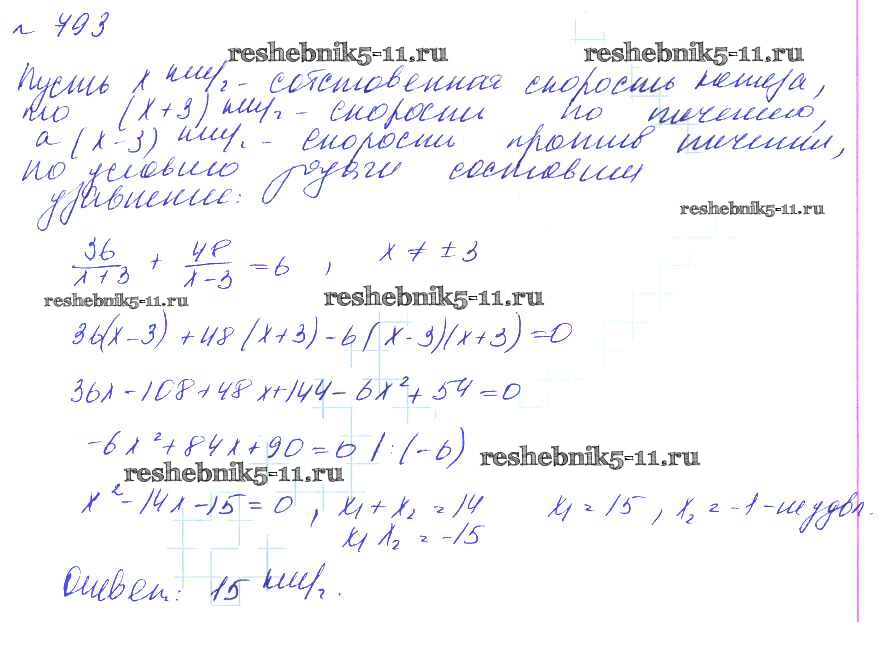 № 793
reshebnik5-11.ru reshebnik5-11.ru
Пусть x км/ч - собственная скорость катера,
то (x+3) км/ч - скорости по течению,
а (x-3) км/ч - скорости против течения,
по условию задачи составим
уравнение:
reshebnik5-11.ru
36/(x+3) + 48/(x-3) = 6 , x ≠ ± 3
reshebnik5-11.ru reshebnik5-11.ru
36(x-3) + 48(x+3) - 6(x-3)(x+3) = 0
36x - 108 + 48x + 144 - 6x² + 54 = 0
-6x² + 84x + 90 = 0 | :(-6)
reshebnik5-11.ru reshebnik5-11.ru
x² - 14x - 15 = 0 , x₁ + x₂ = 14 x₁ = 15 , x₂ = -1 - не удовл.
x₁ x₂ = -15
Ответ: 15 км/ч.